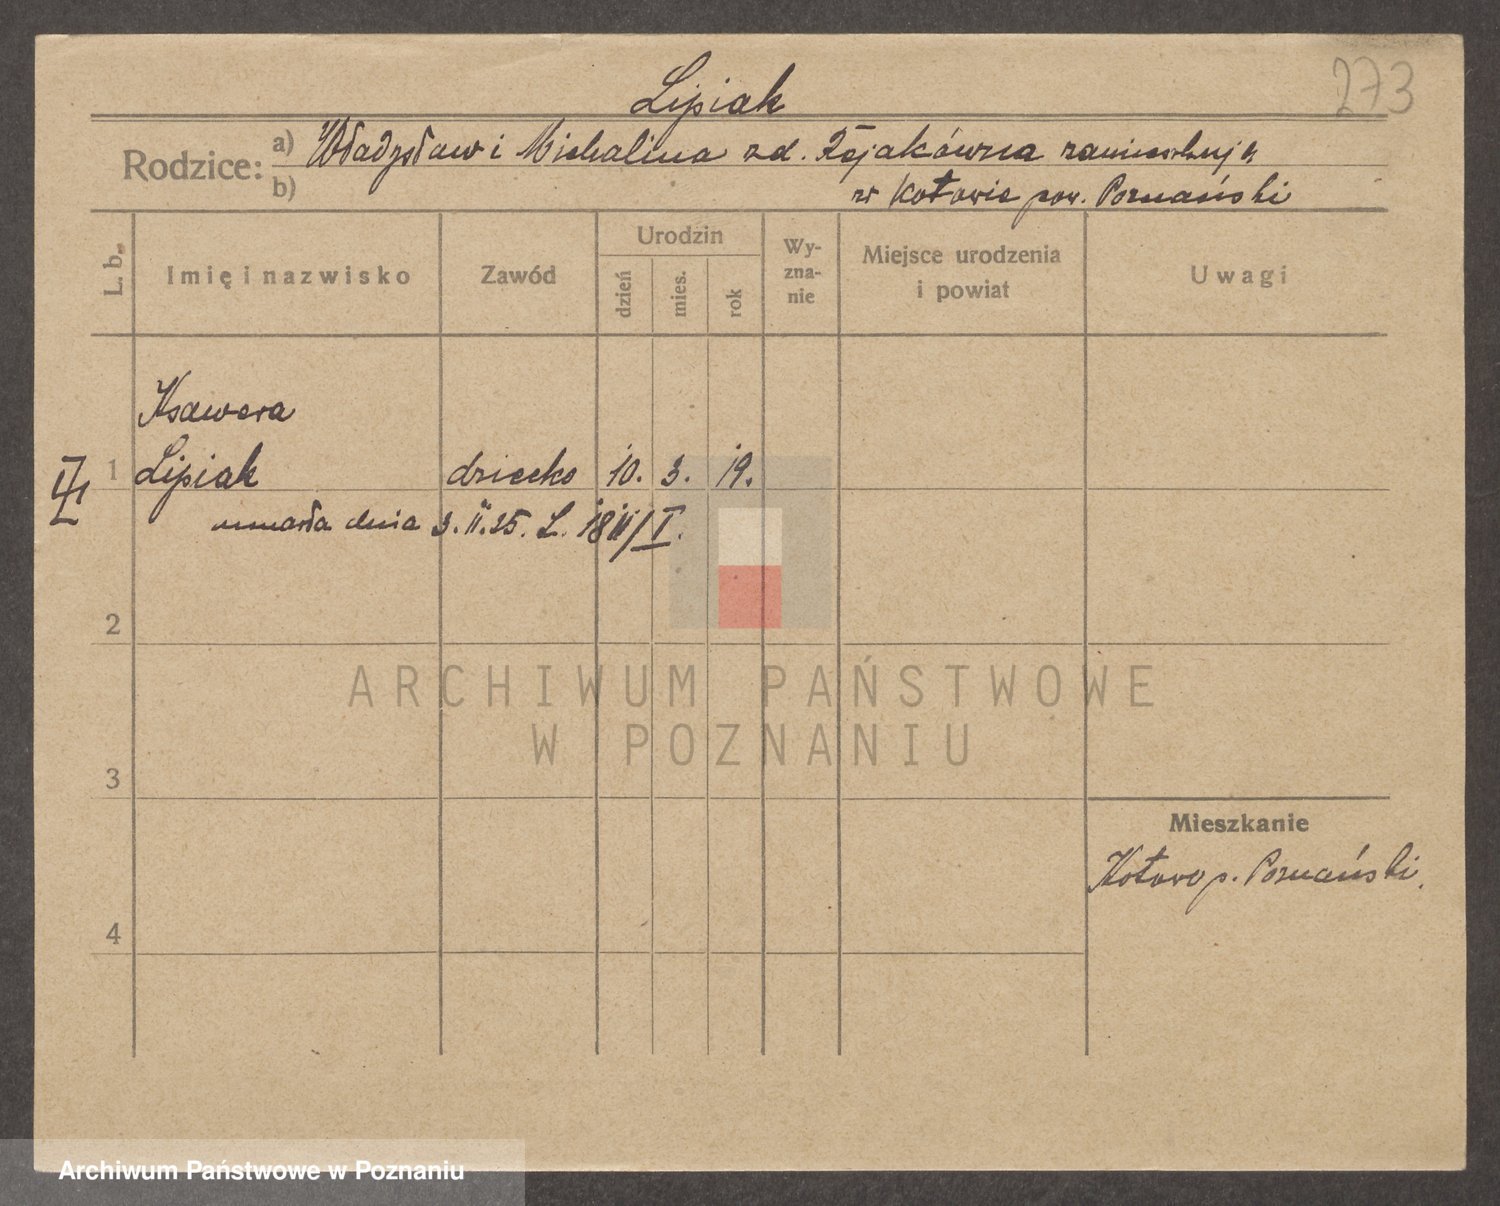 273
Lipiak
Rodzice: a) Władysław i Michalina zd. zamieszkują
b) w Kotowie pow. Poznański
L. b. Imię i nazwisko Zawód Urodzin dzień mies. rok Wyznanie Miejsce urodzenia i powiat Uwagi
Ksawera
1 Lipiak dziecko 10. 3. 19.
umarła dnia 3. II. 25. L.
2
ARCHIWUM PAŃSTWOWE
W POZNANIU
3
Mieszkanie
Kotowo p. Poznański.
4
Archiwum Państwowe w Poznaniu